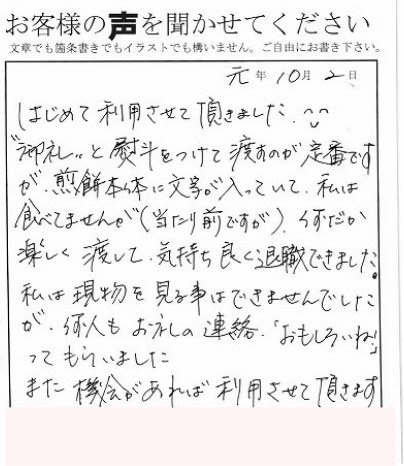 お客様の声を聞かせてください
文章でも箇条書きでもイラストでも構いません。ご自由にお書き下さい。
元年10月2日
はじめて利用させて頂きました.
"御礼"と熨斗をつけて渡すのが定番です
が、煎餅本体に文字が入っていて、私は
食べてませんが(当たり前ですが)、何だか
楽しく渡して、気持ち良く退職できました。
私は現物を見る事はできませんでした
が、何人もお礼の連絡、「おもしろいね」
ってもらいました
また機会があれば利用させて頂きます